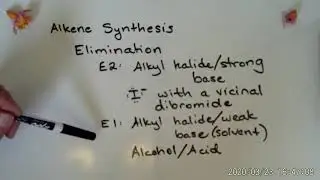 Alkene Synthesis
Elimination
E2: Alkyl halide/strong
base
:I:⁻ with a vicinal
dibromide
E1: Alkyl halide/weak
base (solvent)
Alcohol/Acid